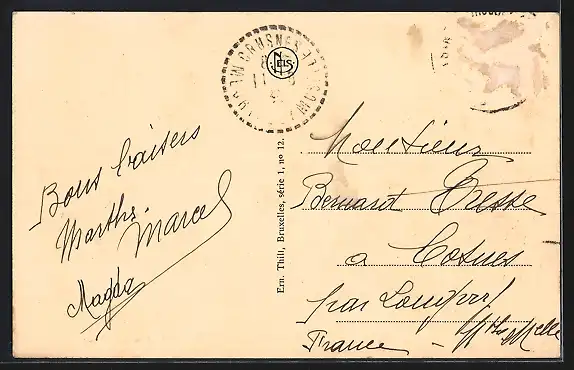 Bons baisers
Marthe
Marcel
Magda
CRUSNES
NELS
Ern. Thill, Bruxelles, série 1, no 12.
Monsieur
Bernard Tresse
a Cosnes
par Longwy
Mthe Melle
France